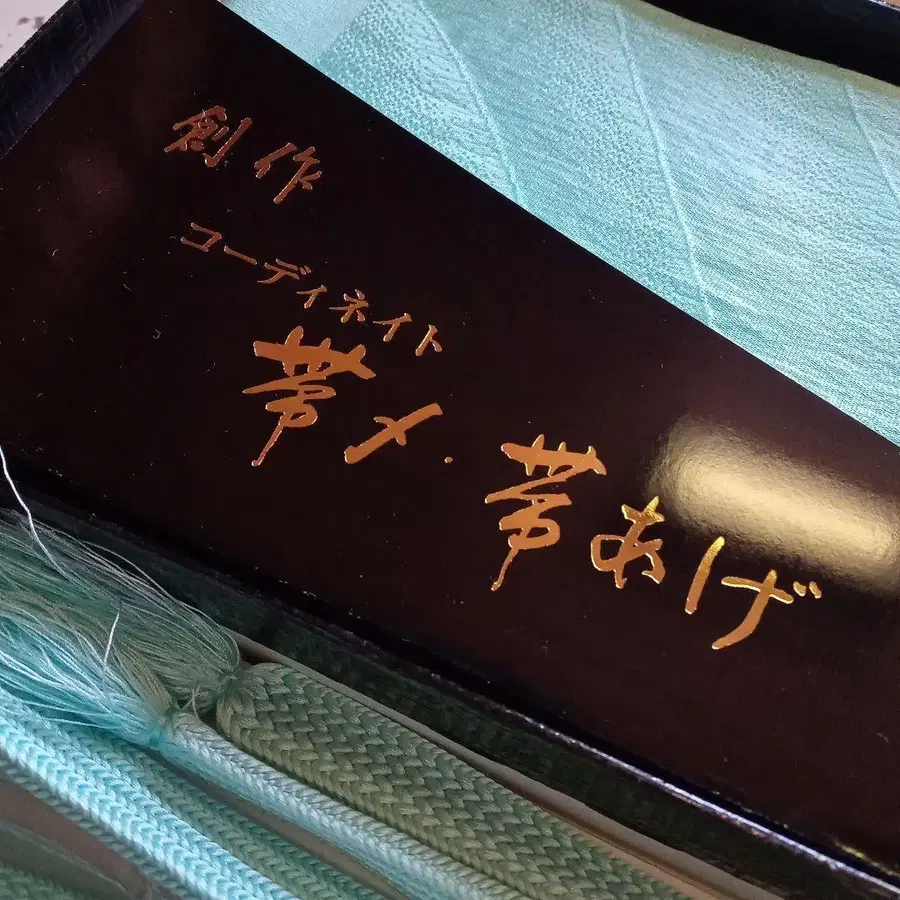 創作
コーディネイト
帯〆・帯あげ